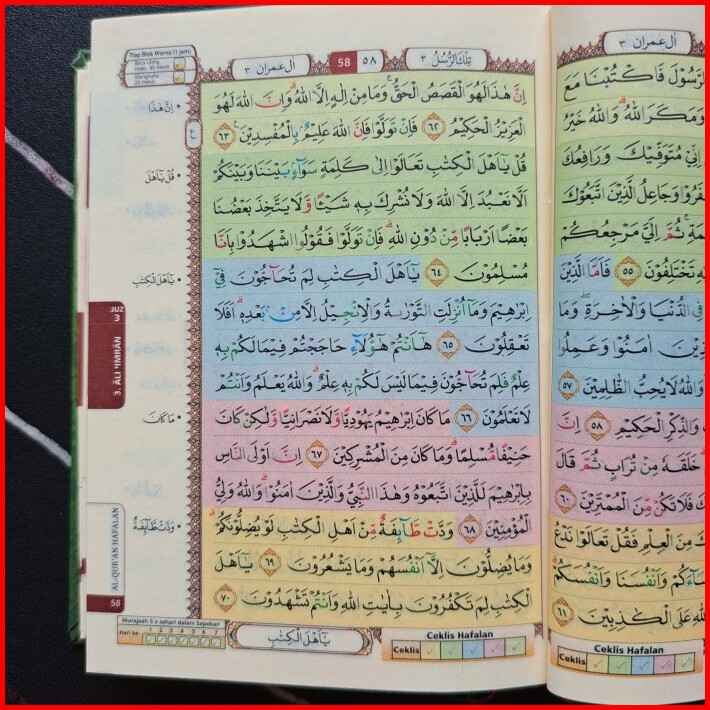 Tiap Blok Warna (1 jam)
Baca ulang
maks. 40 menit
Menghafal
20 menit
اٰل عمران ٣
58
٥٨
تِلْكَ الرُّسُلُ ٣
اِنَّ هٰذَا لَهُوَ الْقَصَصُ الْحَقُّ ۚ وَمَا مِنْ اِلٰهٍ اِلَّا اللّٰهُ ۗوَاِنَّ اللّٰهَ لَهُوَ
الْعَزِيْزُ الْحَكِيْمُ ٦٢ فَاِنْ تَوَلَّوْا فَاِنَّ اللّٰهَ عَلِيْمٌۢ بِالْمُفْسِدِيْنَ ࣖ ٦٣
قُلْ يٰٓاَهْلَ الْكِتٰبِ تَعَالَوْا اِلٰى كَلِمَةٍ سَوَاۤءٍۢ بَيْنَنَا وَبَيْنَكُمْ
اَلَّا نَعْبُدَ اِلَّا اللّٰهَ وَلَا نُشْرِكَ بِهٖ شَيْـًٔا وَّلَا يَتَّخِذَ بَعْضُنَا
بَعْضًا اَرْبَابًا مِّنْ دُوْنِ اللّٰهِ ۗ فَاِنْ تَوَلَّوْا فَقُوْلُوا اشْهَدُوْا بِاَنَّا
مُسْلِمُوْنَ ٦٤ يٰٓاَهْلَ الْكِتٰبِ لِمَ تُحَاۤجُّوْنَ فِيْٓ
اِبْرٰهِيْمَ وَمَآ اُنْزِلَتِ التَّوْرٰىةُ وَالْاِنْجِيْلُ اِلَّا مِنْۢ بَعْدِهٖ ۗ اَفَلَا
تَعْقِلُوْنَ ٦٥ هٰٓاَنْتُمْ هٰٓؤُلَاۤءِ حَاجَجْتُمْ فِيْمَا لَكُمْ بِهٖ
عِلْمٌ فَلِمَ تُحَاۤجُّوْنَ فِيْمَا لَيْسَ لَكُمْ بِهٖ عِلْمٌ ۗ وَاللّٰهُ يَعْلَمُ وَاَنْتُمْ
لَا تَعْلَمُوْنَ ٦٦ مَا كَانَ اِبْرٰهِيْمُ يَهُوْدِيًّا وَّلَا نَصْرَانِيًّا وَّلٰكِنْ كَانَ
حَنِيْفًا مُّسْلِمًا ۗ وَمَا كَانَ مِنَ الْمُشْرِكِيْنَ ٦٧ اِنَّ اَوْلَى النَّاسِ
بِاِبْرٰهِيْمَ لَلَّذِيْنَ اتَّبَعُوْهُ وَهٰذَا النَّبِيُّ وَالَّذِيْنَ اٰمَنُوْا ۗ وَاللّٰهُ وَلِيُّ
الْمُؤْمِنِيْنَ ٦٨ وَدَّتْ طَّاۤىِٕفَةٌ مِّنْ اَهْلِ الْكِتٰبِ لَوْ يُضِلُّوْنَكُمْ ۗ
وَمَا يُضِلُّوْنَ اِلَّآ اَنْفُسَهُمْ وَمَا يَشْعُرُوْنَ ٦٩ يٰٓاَهْلَ
الْكِتٰبِ لِمَ تَكْفُرُوْنَ بِاٰيٰتِ اللّٰهِ وَاَنْتُمْ تَشْهَدُوْنَ ٧٠
يٰٓاَهْلَ الْكِتٰبِ
اِنَّ هٰذَا
قُلْ يٰٓاَهْلَ
يٰٓاَهْلَ الْكِتٰبِ
مَا كَانَ
وَدَّتْ طَّاۤىِٕفَةٌ
JUZ
3
3. ĀLI 'IMRĀN
AL-QUR'AN HAFALAN
58
Murajaah 5 x sehari dalam Sepekan
Hari ke- 1 2 3 4 5 6 7
Ceklis Hafalan
Ceklis
اٰل عمران ٣
الرَّسُوْلَ فَاكْتُبْنَا مَعَ
وَمَكَرَ اللّٰهُ ۗوَاللّٰهُ خَيْرُ
اِنِّيْ مُتَوَفِّيْكَ وَرَافِعُكَ
كَفَرُوْا وَجَاعِلُ الَّذِيْنَ اتَّبَعُوْكَ
ثُمَّ اِلَيَّ مَرْجِعُكُمْ
تَخْتَلِفُوْنَ ٥٥ فَاَمَّا الَّذِيْنَ
فِى الدُّنْيَا وَالْاٰخِرَةِ ۖوَمَا
اٰمَنُوْا وَعَمِلُوا
وَاللّٰهُ لَا يُحِبُّ الظّٰلِمِيْنَ ٥٧
وَالذِّكْرِ الْحَكِيْمِ ٥٨ اِنَّ
خَلَقَهٗ مِنْ تُرَابٍ ثُمَّ قَالَ
فَلَا تَكُنْ مِّنَ الْمُمْتَرِيْنَ ٦٠
مِنَ الْعِلْمِ فَقُلْ تَعَالَوْا نَدْعُ
وَاَنْفُسَنَا وَاَنْفُسَكُمْ
اللّٰهِ عَلَى الْكٰذِبِيْنَ ٦١
Ceklis Hafalan
Ceklis